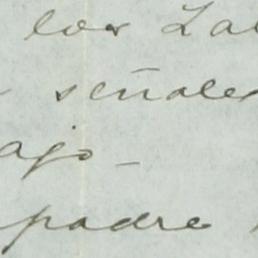 los La
señales
ajo -
padre